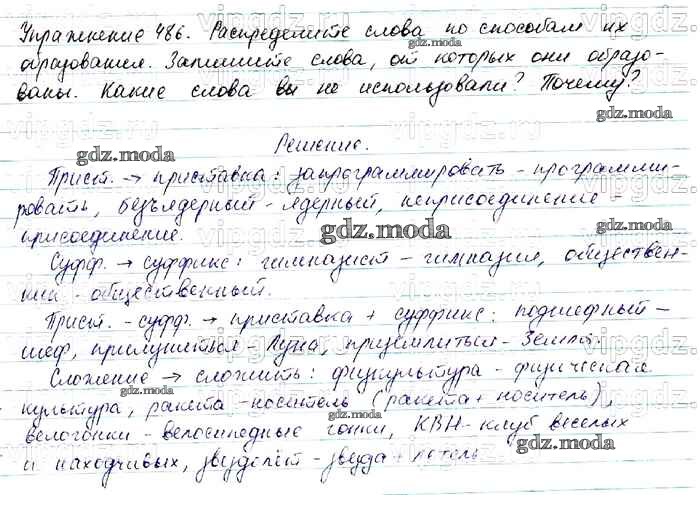 Упражнение 486. Распределите слова по способам их
образования. Запишите слова, от которых они образо-
ваны. Какие слова вы не использовали? Почему?
Решение.
Прист. → приставка: запрограммировать - программи-
ровать, безъядерный - ядерный, неприсоединение -
присоединение.
Суфф. → суффикс: гимназист - гимназия, обществен-
ник - общественный.
Прист. - суфф. → приставка + суффикс: подшефный -
шеф, прилуниться - Луна, приземлиться - Земля.
Сложение → сложить: физкультура - физическая
культура, ракета-носитель (ракета + носитель),
велогонки - велосипедные гонки, КВН - клуб веселых
и находчивых, звездолёт - звезда + летель
gdz.moda
gdz.moda
gdz.moda
gdz.moda
gdz.moda
gdz.moda
gdz.moda
gdz.moda
gdz.moda
gdz.moda
gdz.moda
gdz.moda